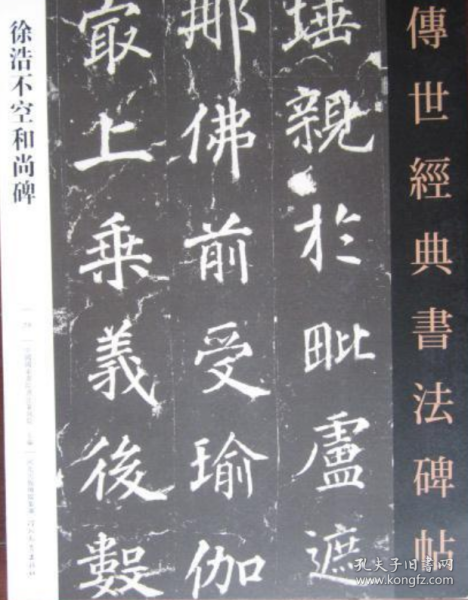 傳世經典書法碑帖
埵親於毗盧遮
那佛前受瑜伽
最上乘義後數
徐浩不空和尚碑
孔夫子旧书网
www.kongfz.com